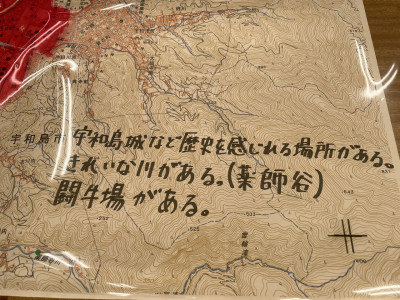 宇和島市
宇和島城など歴史を感じれる場所がある。
きれいな川がある。(薬師谷)
闘牛場がある。